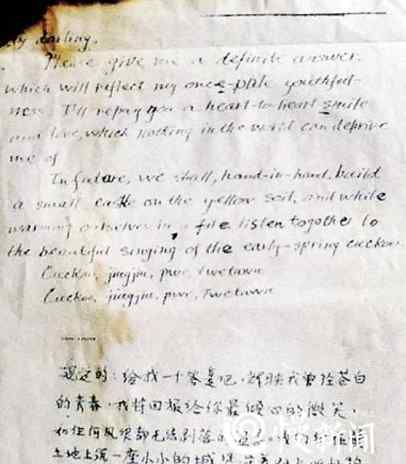 My darling,
Please give me a definite answer,
which will reflect my once-pale youthful-
ness. I'll repay you a heart-to-heart smile
and love, which nothing in the world can deprive
me of
In future, we shall, hand-in-hand, build
a small castle on the yellow soil, and while
warming ourselves by a fire listen together to
the beautiful singing of the early-spring cuckoo
Cuckoo, jugjju, pwe, Twetawa
Cuckoo, jugjju, pwe, Twetawa
的：给我一个答复吧，辉映我曾经苍白
的青春，我将回报给你最倾心的微笑，
和任何风浪都无法剥落的
土地上 一座小小的城堡